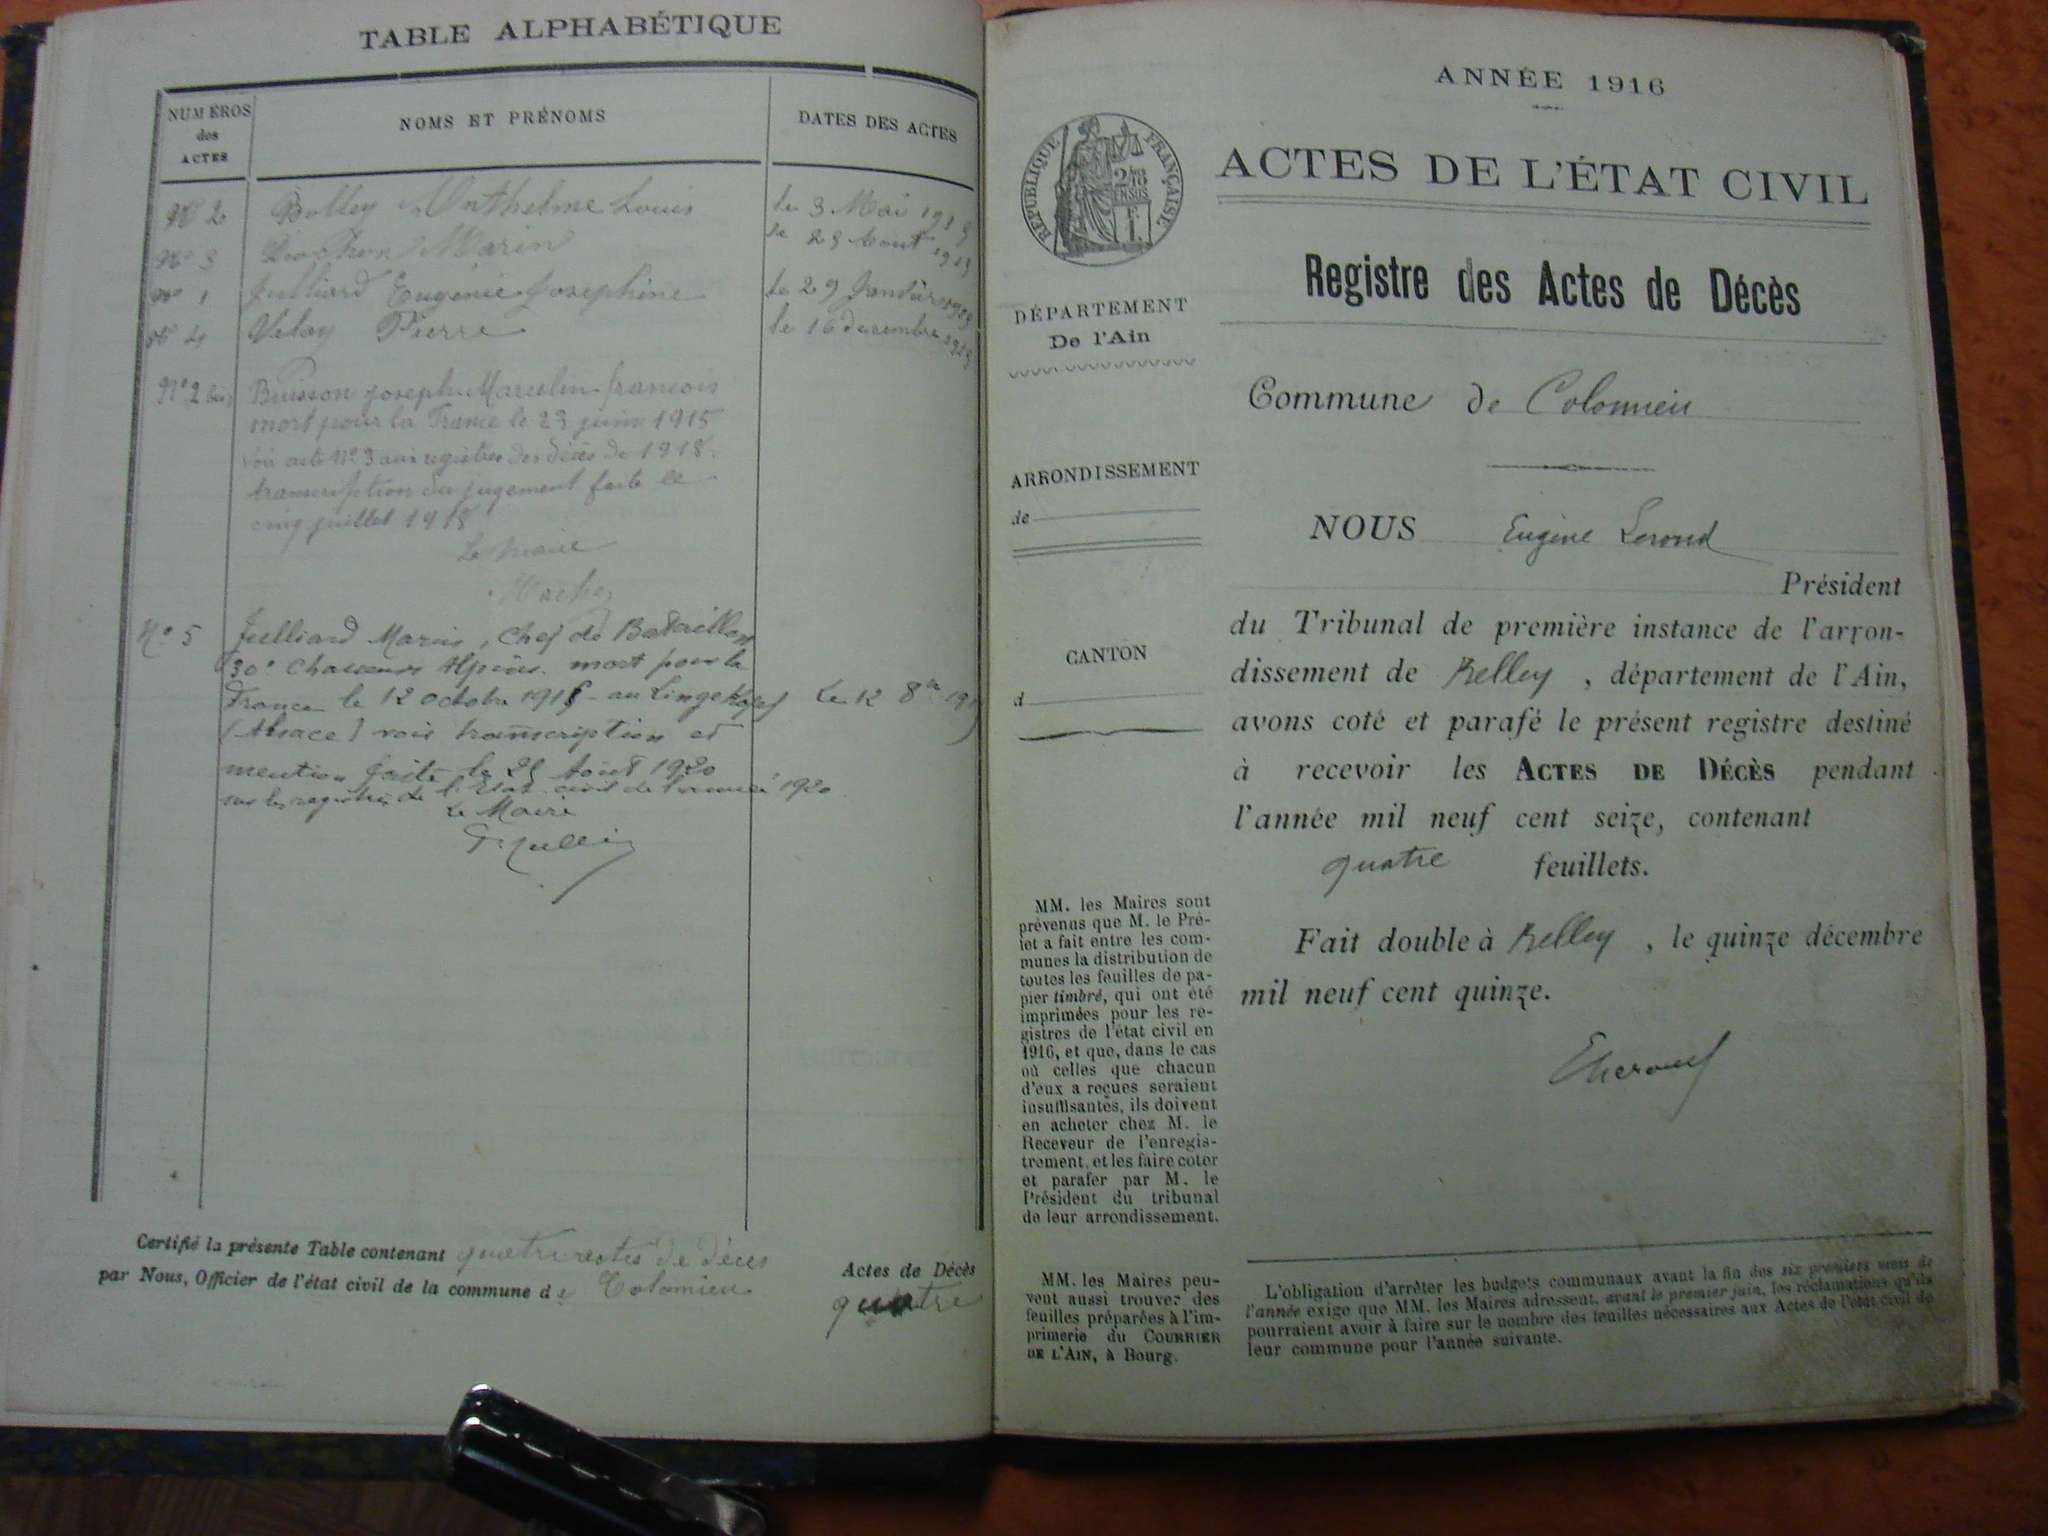 TABLE ALPHABÉTIQUE
NUMÉROS
des
ACTES
NOMS ET PRÉNOMS
DATES DES ACTES
No 2 Bolley Anthelme Louis le 3 Mai
No 3 Marin le 29 Aout
No 1 Julliard Eugénie Josephine le 29 Janvier
No 4 Velay Pierre le 16 decembre
No 2 bis Buisson Joseph Marcelin francois
mort pour la France le 23 juin 1915
voir acte No 3 aux registres des décès de 1918.
transcription du jugement faite le
cinq juillet 1918
Le Maire
No 5 Julliard Marius, Chef de Bataillon
30e Chasseurs Alpins. mort pour la
France le 12 octobre 1915 au Lingekopf le 12 8re
(Alsace) voir transcription et
mention faite le Aout 1920
sur les registres de l'Etat civil de l'année 1920
Le Maire
Certifié la présente Table contenant quatre actes de décès Actes de Décès
par Nous, Officier de l'état civil de la commune de Colomieu quatre
ANNÉE 1916
RÉPUBLIQUE FRANÇAISE
2/10mes
EN SUS
1 F.
ACTES DE L'ÉTAT CIVIL
Registre des Actes de Décès
DÉPARTEMENT
De l'Ain
Commune de Colomieu
ARRONDISSEMENT
de
NOUS Eugène Lerond
Président
du Tribunal de première instance de l'arron-
dissement de Belley, département de l'Ain,
avons coté et parafé le présent registre destiné
à recevoir les ACTES DE DÉCÈS pendant
l'année mil neuf cent seize, contenant
quatre feuillets.
Fait double à Belley, le quinze décembre
mil neuf cent quinze.
CANTON
d
MM. les Maires sont
prévenus que M. le Pré-
fet a fait entre les com-
munes la distribution de
toutes les feuilles de pa-
pier timbré, qui ont été
imprimées pour les re-
gistres de l'état civil en
1916, et que, dans le cas
où celles que chacun
d'eux a reçues seraient
insuffisantes, ils doivent
en acheter chez M. le
Receveur de l'enregis-
trement, et les faire coter
et parafer par M. le
Président du tribunal
de leur arrondissement.
MM. les Maires peu-
vent aussi trouver des
feuilles préparées à l'im-
primerie du COURRIER
DE L'AIN, à Bourg.
L'obligation d'arrêter les budgets communaux avant la fin des six premiers mois de
l'année exige que MM. les Maires adressent, avant le premier juin, les réclamations qu'ils
pourraient avoir à faire sur le nombre des feuilles nécessaires aux Actes de l'état civil de
leur commune pour l'année suivante.